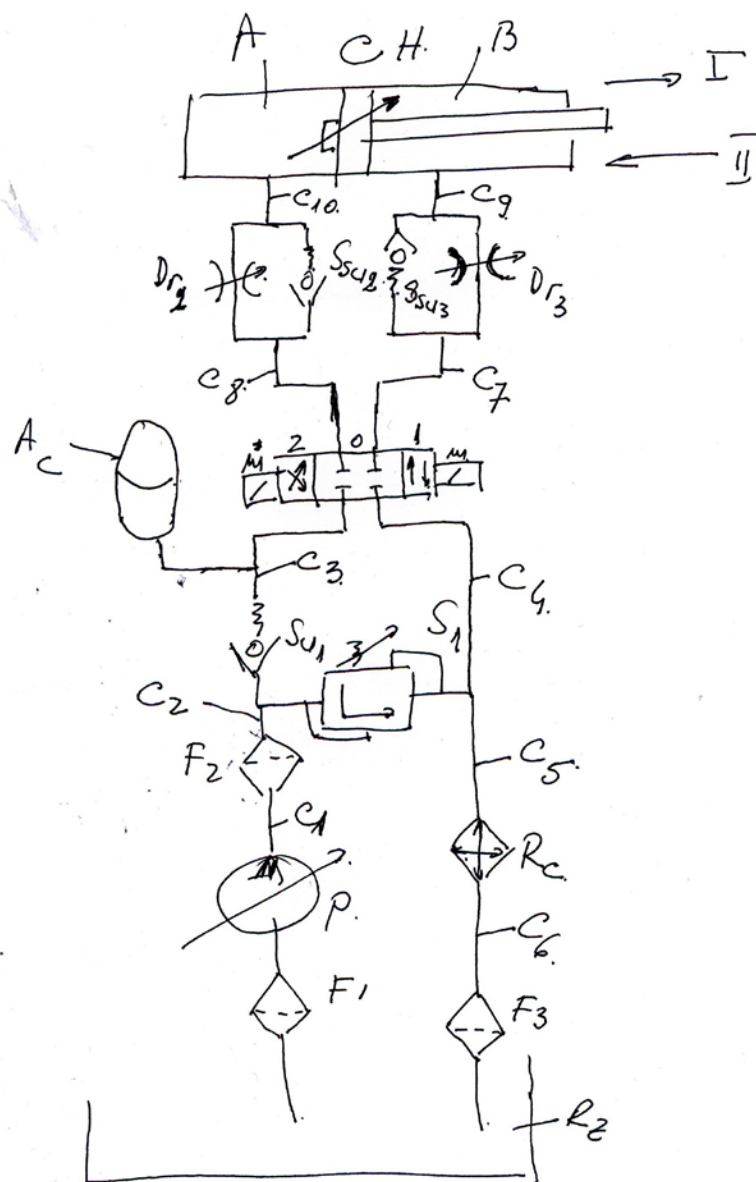 A C H. B I
II
C10. C9
Dr2 Ssu2 Ssu3 Dr3
C8. C7
Ac 2 0 1
m m
C3. C4.
Su1 S1
C2
F2 C5.
C1 Rc.
P. C6.
F1 F3
Rz